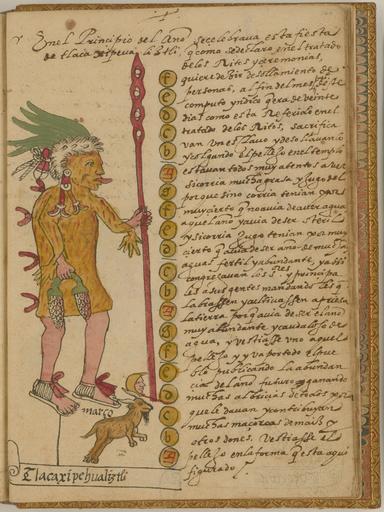 En el Principio del Año se celebrava esta fiesta
de tlacaxipevalistli, q como se declaro en el tratado
de los Ritos y ceremonias,
quiere dezir desollamiento de
personas, al fin del mes
computo y
dias como esta Referido en el
tratado de los Ritos, sacrifica
van un esclavo y desollavanlo
y colgando el pellejo en el templo
estavan todos muy atentos a ver
si corria mucha grasa y jugo del
porque si no corria tenian por
muy cierto q no avia de aver agua
aquel año y avia de ser steril
y si corria jugo tenian por muy
cierto q avia de ser año de mucha
aguas fertil y abundante, ya si
congregavan los y principa
les a sus gentes mandandoles q
labrassen y cultivassen apriesa
la tierra porq avia de ser el año
muy abundante y caudaloso de
agua, y vestiasse uno aquel
pellejo y yva por todo el pue
blo publicando la abundan
cia del año futuro y ganando
muchas albricias de todos por
que le davan y contribuyan
muchas maçorcas de maiz y
otros dones. Vestiasse el
pellejo en la forma q esta aqui
figurado
f
e
d
c
b
A
g
f
e
d
c
b
A
g
f
e
d
c
b
A
março
Tlacaxipehualiztli